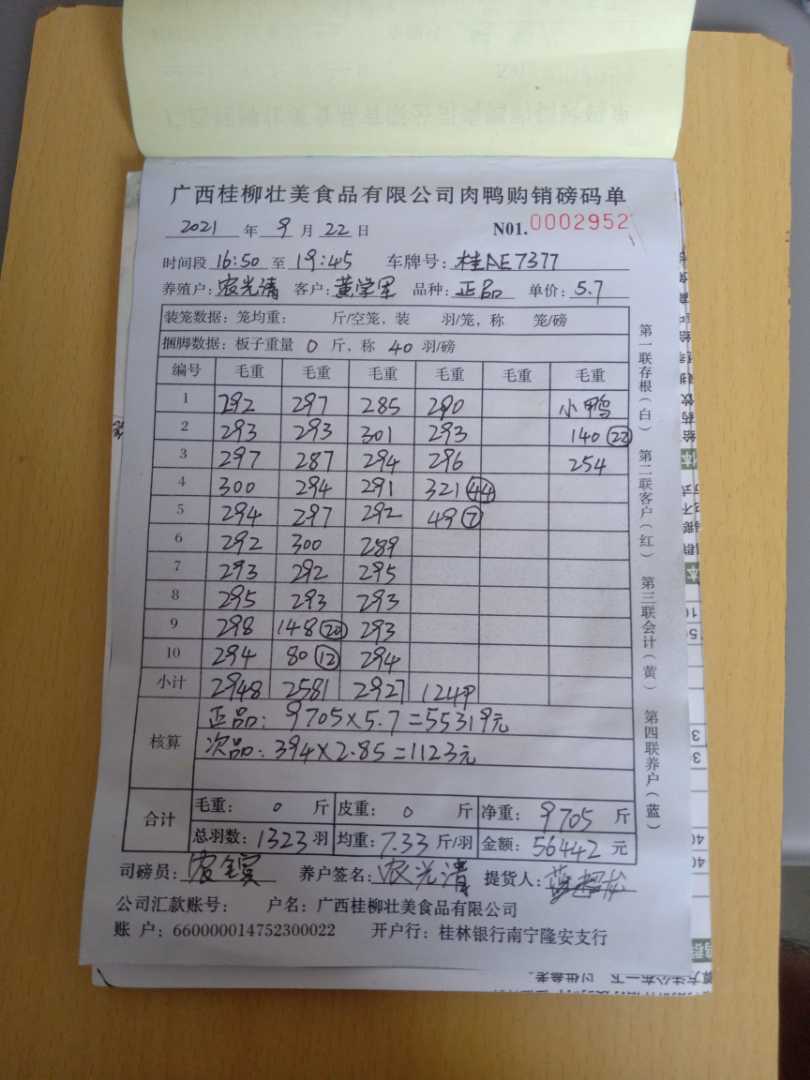 广西桂柳壮美食品有限公司肉鸭购销磅码单
2021 年 9 月 22 日 N01.0002952
时间段 16:50 至 19:45 车牌号: 桂AE7377
养殖户: 农光清 客户: 黄学军 品种: 正品 单价: 5.7
装笼数据: 笼均重: 斤/空笼, 装 羽/笼, 称 笼/磅
捆脚数据: 板子重量 0 斤, 称 40 羽/磅
编号 毛重 毛重 毛重 毛重 毛重 毛重
1 292 297 285 290 小鸭
2 293 293 301 293 140 22
3 297 287 294 296 254
4 300 294 291 321 44
5 294 297 292 49 7
6 292 300 289
7 293 292 295
8 295 293 293
9 298 148 20 293
10 294 80 12 294
小计 2948 2581 2927 1249
核算
正品: 9705×5.7=55319元
次品: 394×2.85=1123元
合计
毛重: 0 斤 皮重: 0 斤 净重: 9705 斤
总羽数: 1323 羽 均重: 7.33 斤/羽 金额: 56442 元
司磅员: 养户签名: 农光清 提货人:
公司汇款账号: 户名: 广西桂柳壮美食品有限公司
账 户: 660000014752300022 开户行: 桂林银行南宁隆安支行
第一联存根(白) 第二联客户(红) 第三联会计(黄) 第四联养户(蓝)